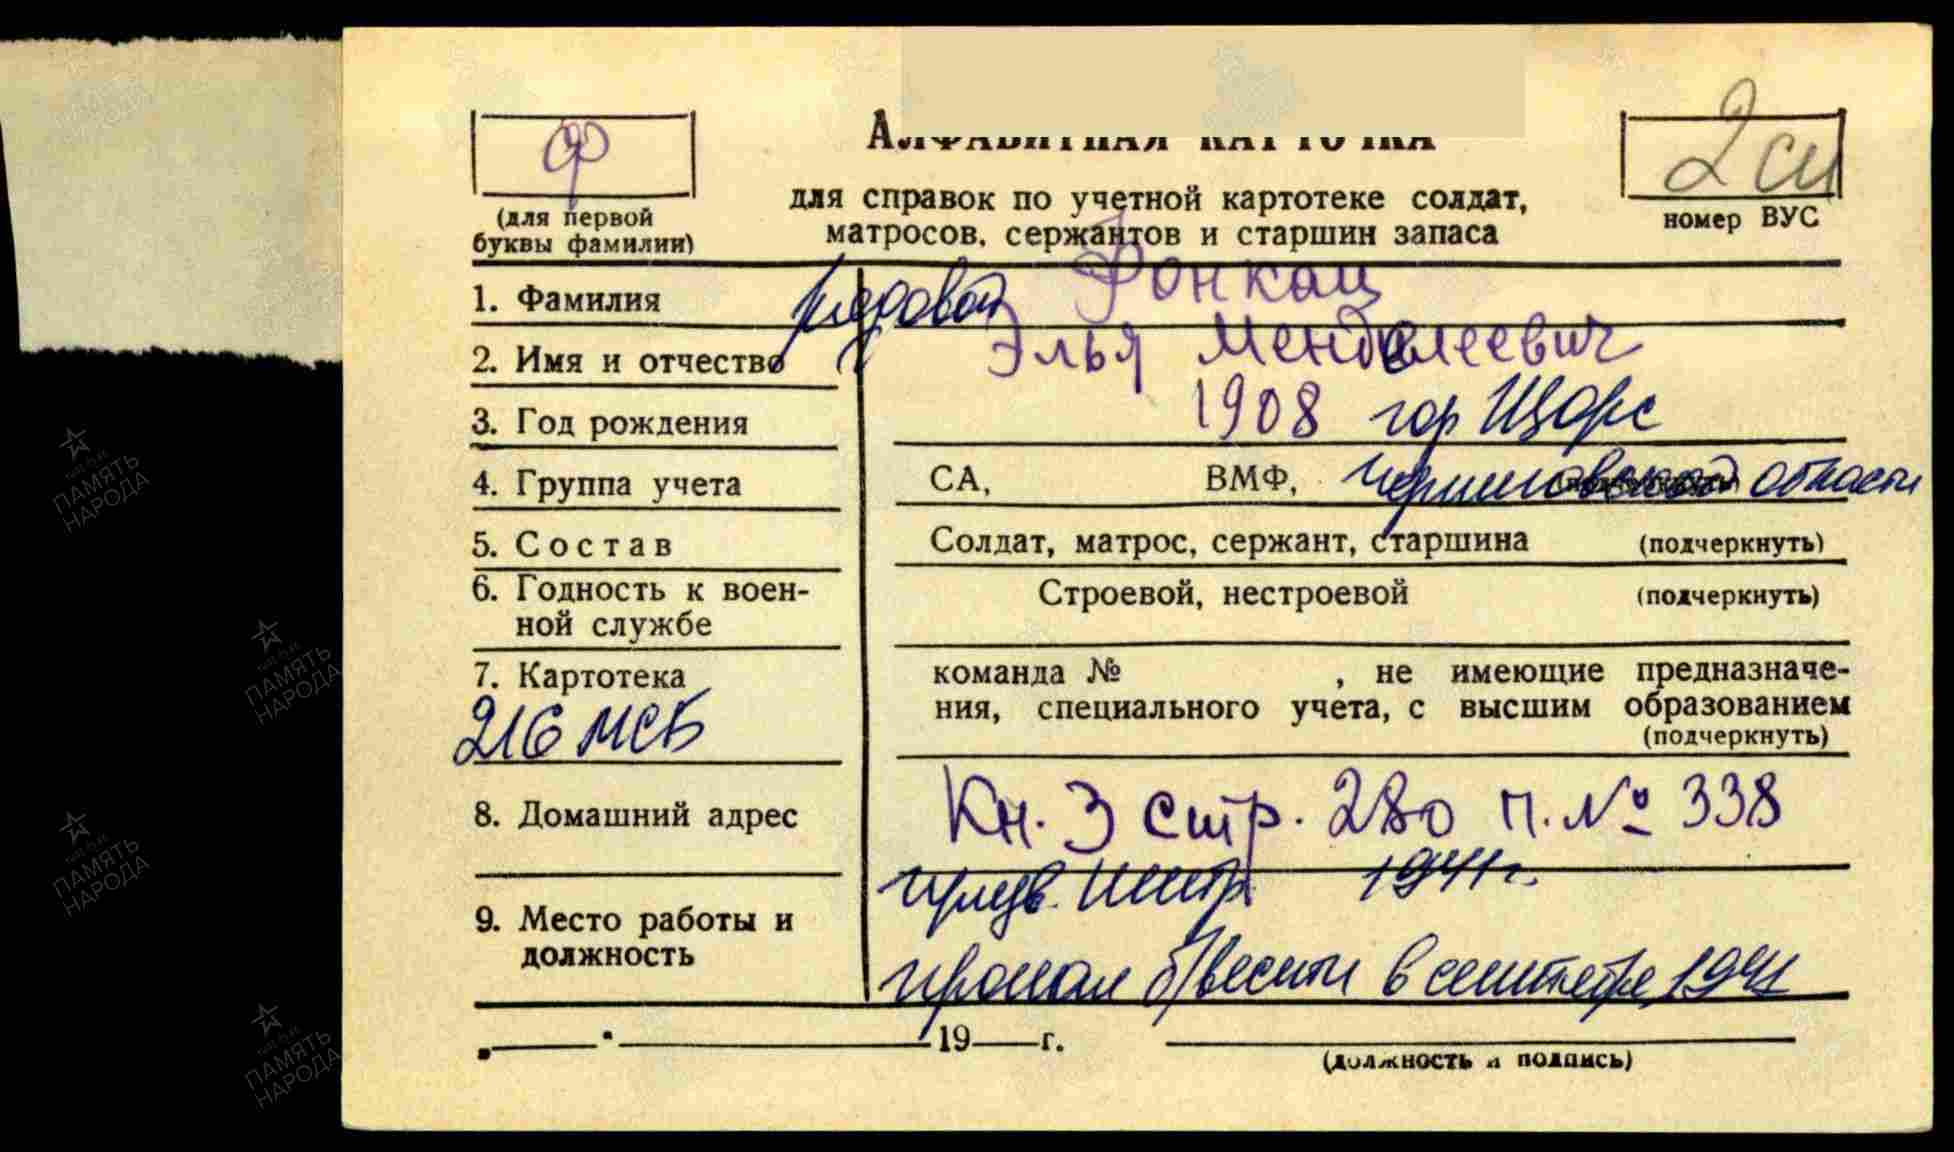 Ф
АЛФАВИТНАЯ КАРТОЧКА
2 сл
(для первой
буквы фамилии)
для справок по учетной картотеке солдат,
матросов, сержантов и старшин запаса
номер ВУС
1. Фамилия рядовой Фонкац
2. Имя и отчество Элья Менделеевич
3. Год рождения 1908 гор Щорс
4. Группа учета СА, ВМФ, Черниговской области
5. Состав Солдат, матрос, сержант, старшина (подчеркнуть)
6. Годность к воен-
ной службе
Строевой, нестроевой (подчеркнуть)
7. Картотека
216 МСБ
команда № , не имеющие предназначе-
ния, специального учета, с высшим образованием
(подчеркнуть)
8. Домашний адрес Кн. 3 стр. 280 п. № 338
призв. 1941 г.
9. Место работы и
должность
пропал б/вести в сентябре 1941
19 г.
(должность и подпись)
ПАМЯТЬ
НАРОДА
ПАМЯТЬ
НАРОДА
ПАМЯТЬ
НАРОДА
ПАМЯТЬ
НАРОДА